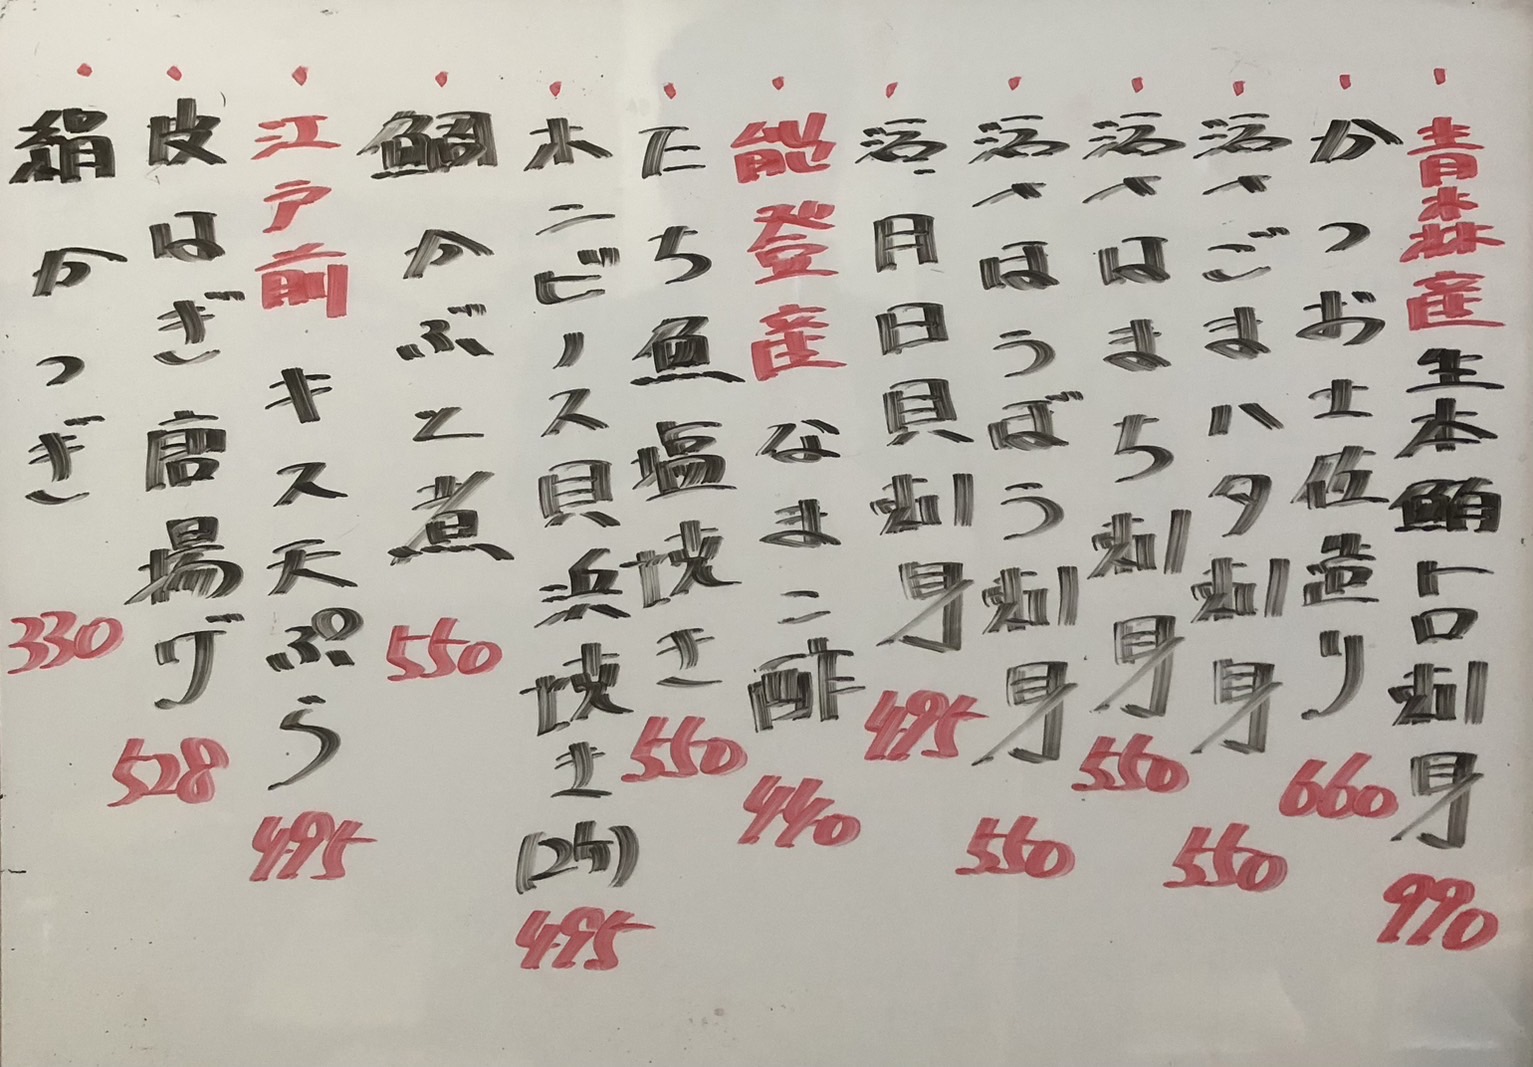 ・青森産生本鮪トロ刺身 990
・かつお土佐造り 660
・活〆ごまハタ刺身 550
・活〆はまち刺身 550
・活〆ほうぼう刺身 550
・活月日貝刺身 495
・能登産なまこ酢 440
・たち魚塩焼き 550
・ホンビノス貝浜焼き(2ケ) 495
・鯛かぶと煮 550
・江戸前キス天ぷら 495
・皮はぎ唐揚げ 528
・絹かつぎ 330